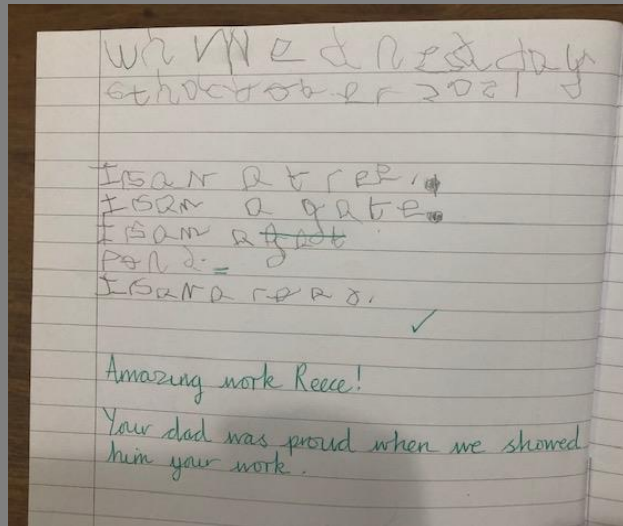 wh Wednesday
6th October 2021
I saw a tree.
I saw a gate.
I saw a
pond.
I saw a road.
Amazing work Reece!
Your dad was proud when we showed
him your work.